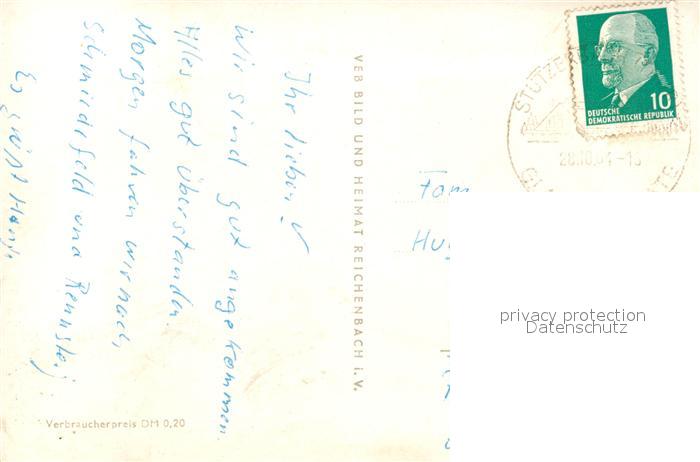 Ihr Lieben!
Wir sind gut angekommen.
Alles gut überstanden.
Morgen fahren wir nach
Schmiedefeld und Rennsteig
Es grüßt
VEB BILD UND HEIMAT REICHENBACH i. V.
Verbraucherpreis DM 0,20
10
DEUTSCHE
DEMOKRATISCHE REPUBLIK
STÜTZE
Fam
Hu
privacy protection
Datenschutz